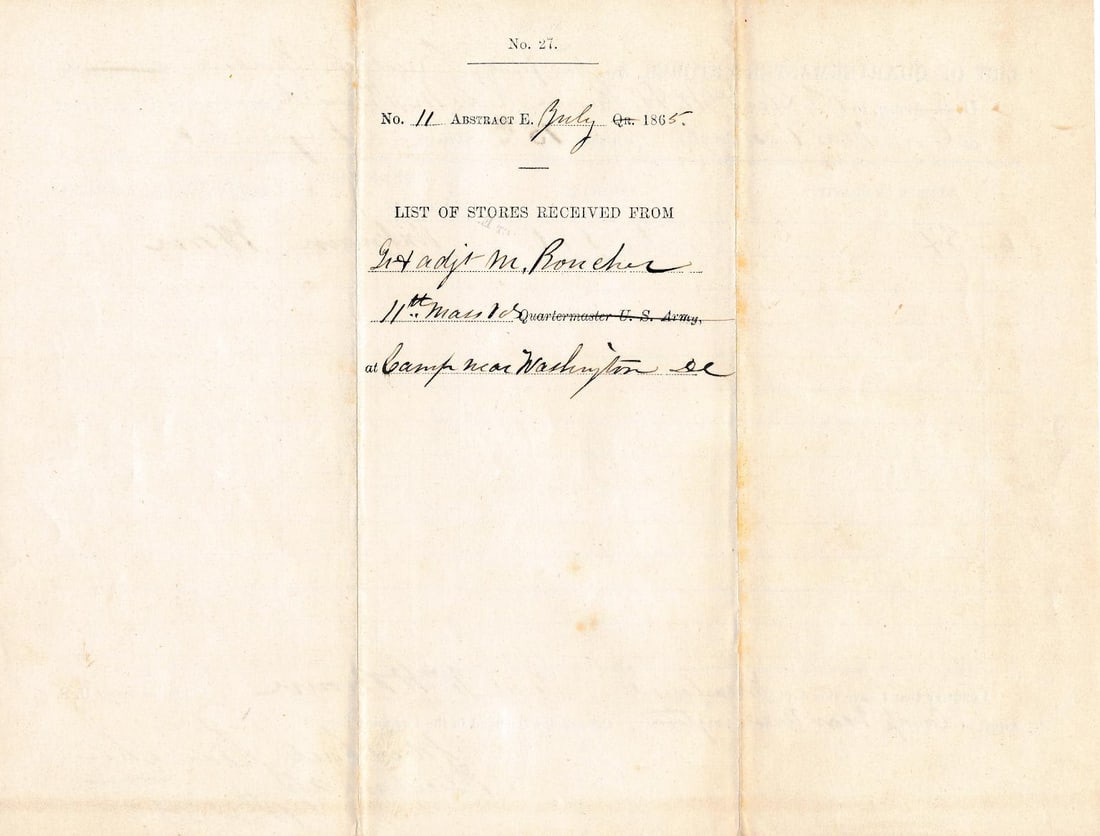 No. 27.
No. 11 Abstract E. July Qr. 1865.
LIST OF STORES RECEIVED FROM
adjt M. Boucher
11th Mass Vols Quartermaster U. S. Army,
at Camp near Washington DC